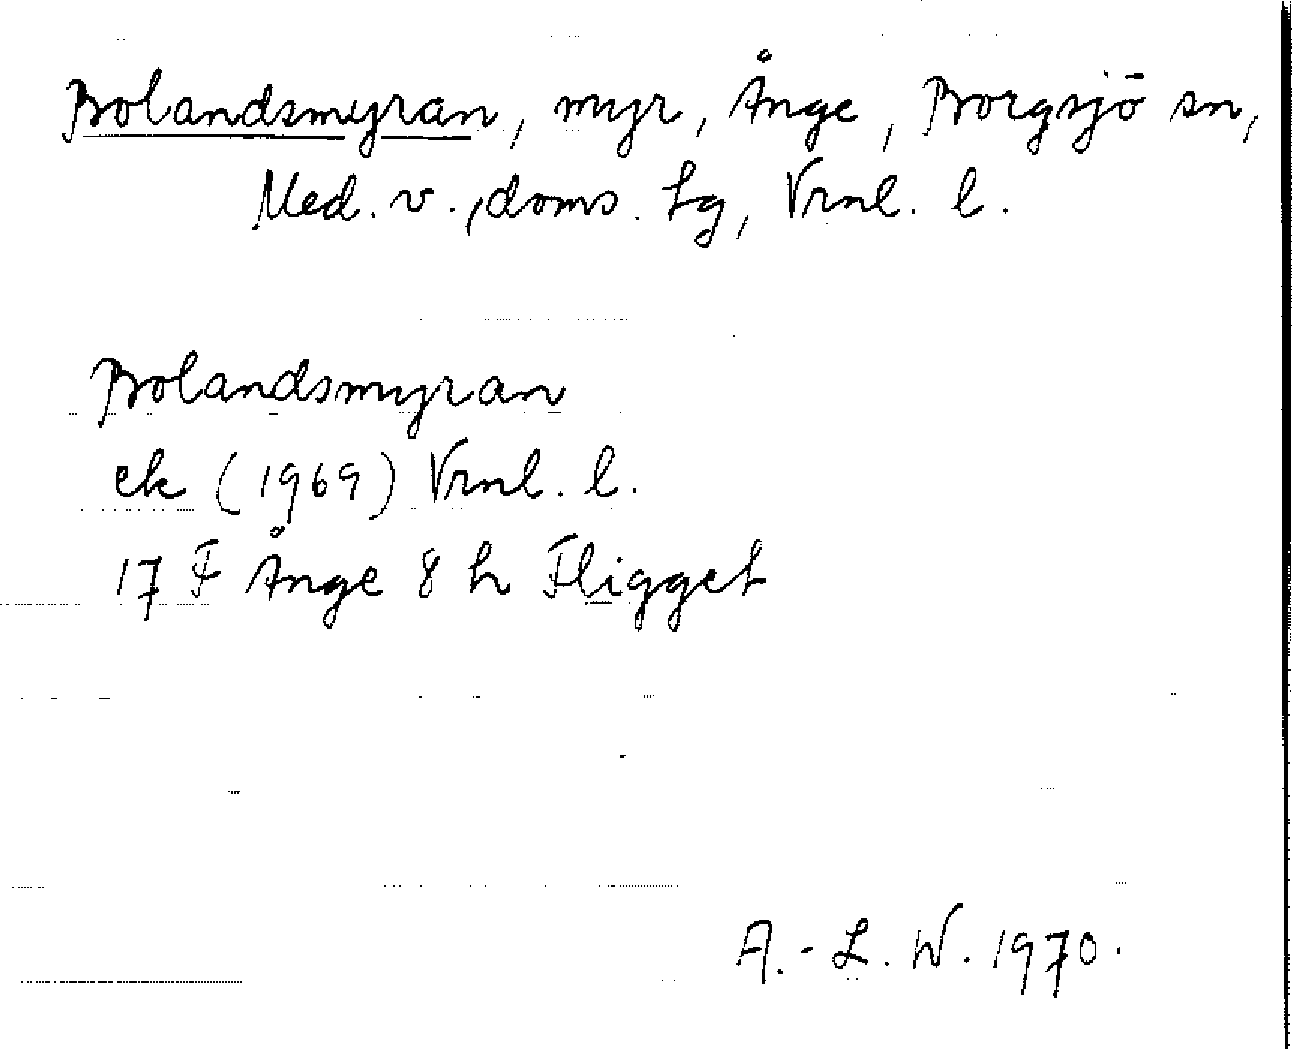 Bolandsmyran, myr, Ånge, Borgsjö sn,
Med. v., doms. tg, Vrnl. l.
Bolandsmyran
ek (1969) Vrnl. l.
17 F Ånge 8 h Fligget
A.-L. W. 1970.